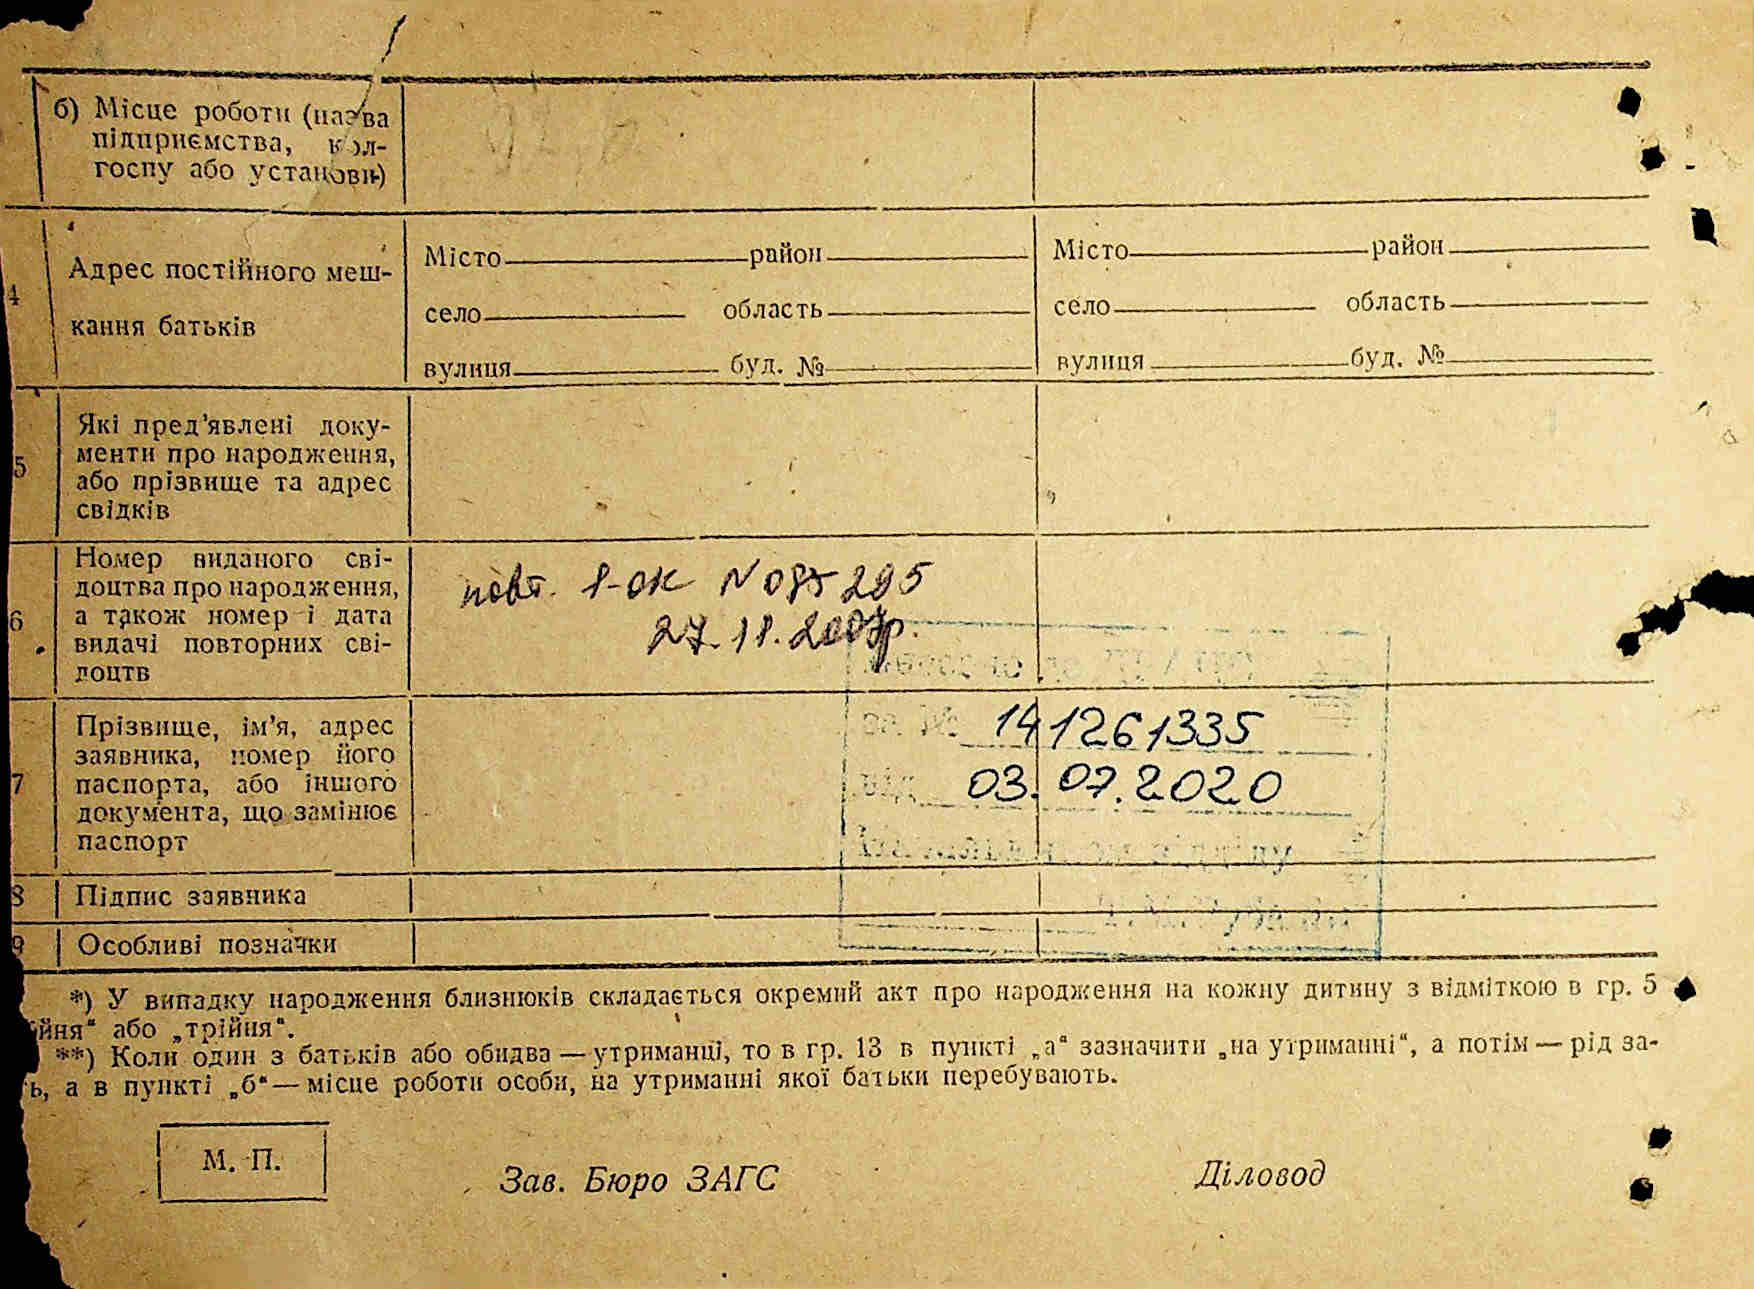 б) Місце роботи (назва
підприємства, кол-
госпу або установи)
4
Адрес постійного меш-
кання батьків
Місто район
село область
вулиця буд. №
Місто район
село область
вулиця буд. №
5
Які пред'явлені доку-
менти про народження,
або прізвище та адрес
свідків
6
Номер виданого сві-
доцтва про народження,
а також номер і дата
видачі повторних сві-
доцтв
повт. 1-ок N 085295
27.11.2007р.
7
Прізвище, ім'я, адрес
заявника, номер його
паспорта, або іншого
документа, що замінює
паспорт
за № 141261335
від 03.07.2020
8
Підпис заявника
9
Особливі позначки
*) У випадку народження близнюків складається окремий акт про народження на кожну дитину з відміткою в гр. 5
або „трійня“.
**) Коли один з батьків або обидва — утриманці, то в гр. 13 в пункті „а“ зазначити „на утриманні“, а потім — рід за-
а в пункті „б“ — місце роботи особи, на утриманні якої батьки перебувають.
М. П.
Зав. Бюро ЗАГС
Діловод